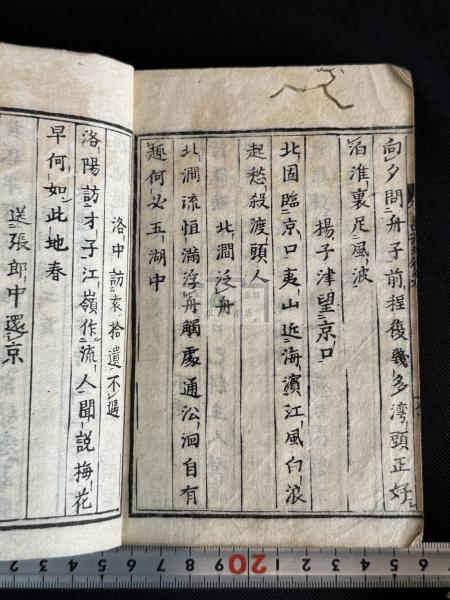 向夕問舟子前程復幾多湾頭正好
泊淮裏足風波
揚子津望京口
北固臨京口夷山近海濱江風白浪
起愁殺渡頭人
北澗泛舟
北澗流恒滿浮舟觸處通㳂洄自有
趣何必五湖中
洛中訪袁拾遺不遇
洛陽訪才子江嶺作流人聞說梅花
早何如此地春
送張郎中還京
20